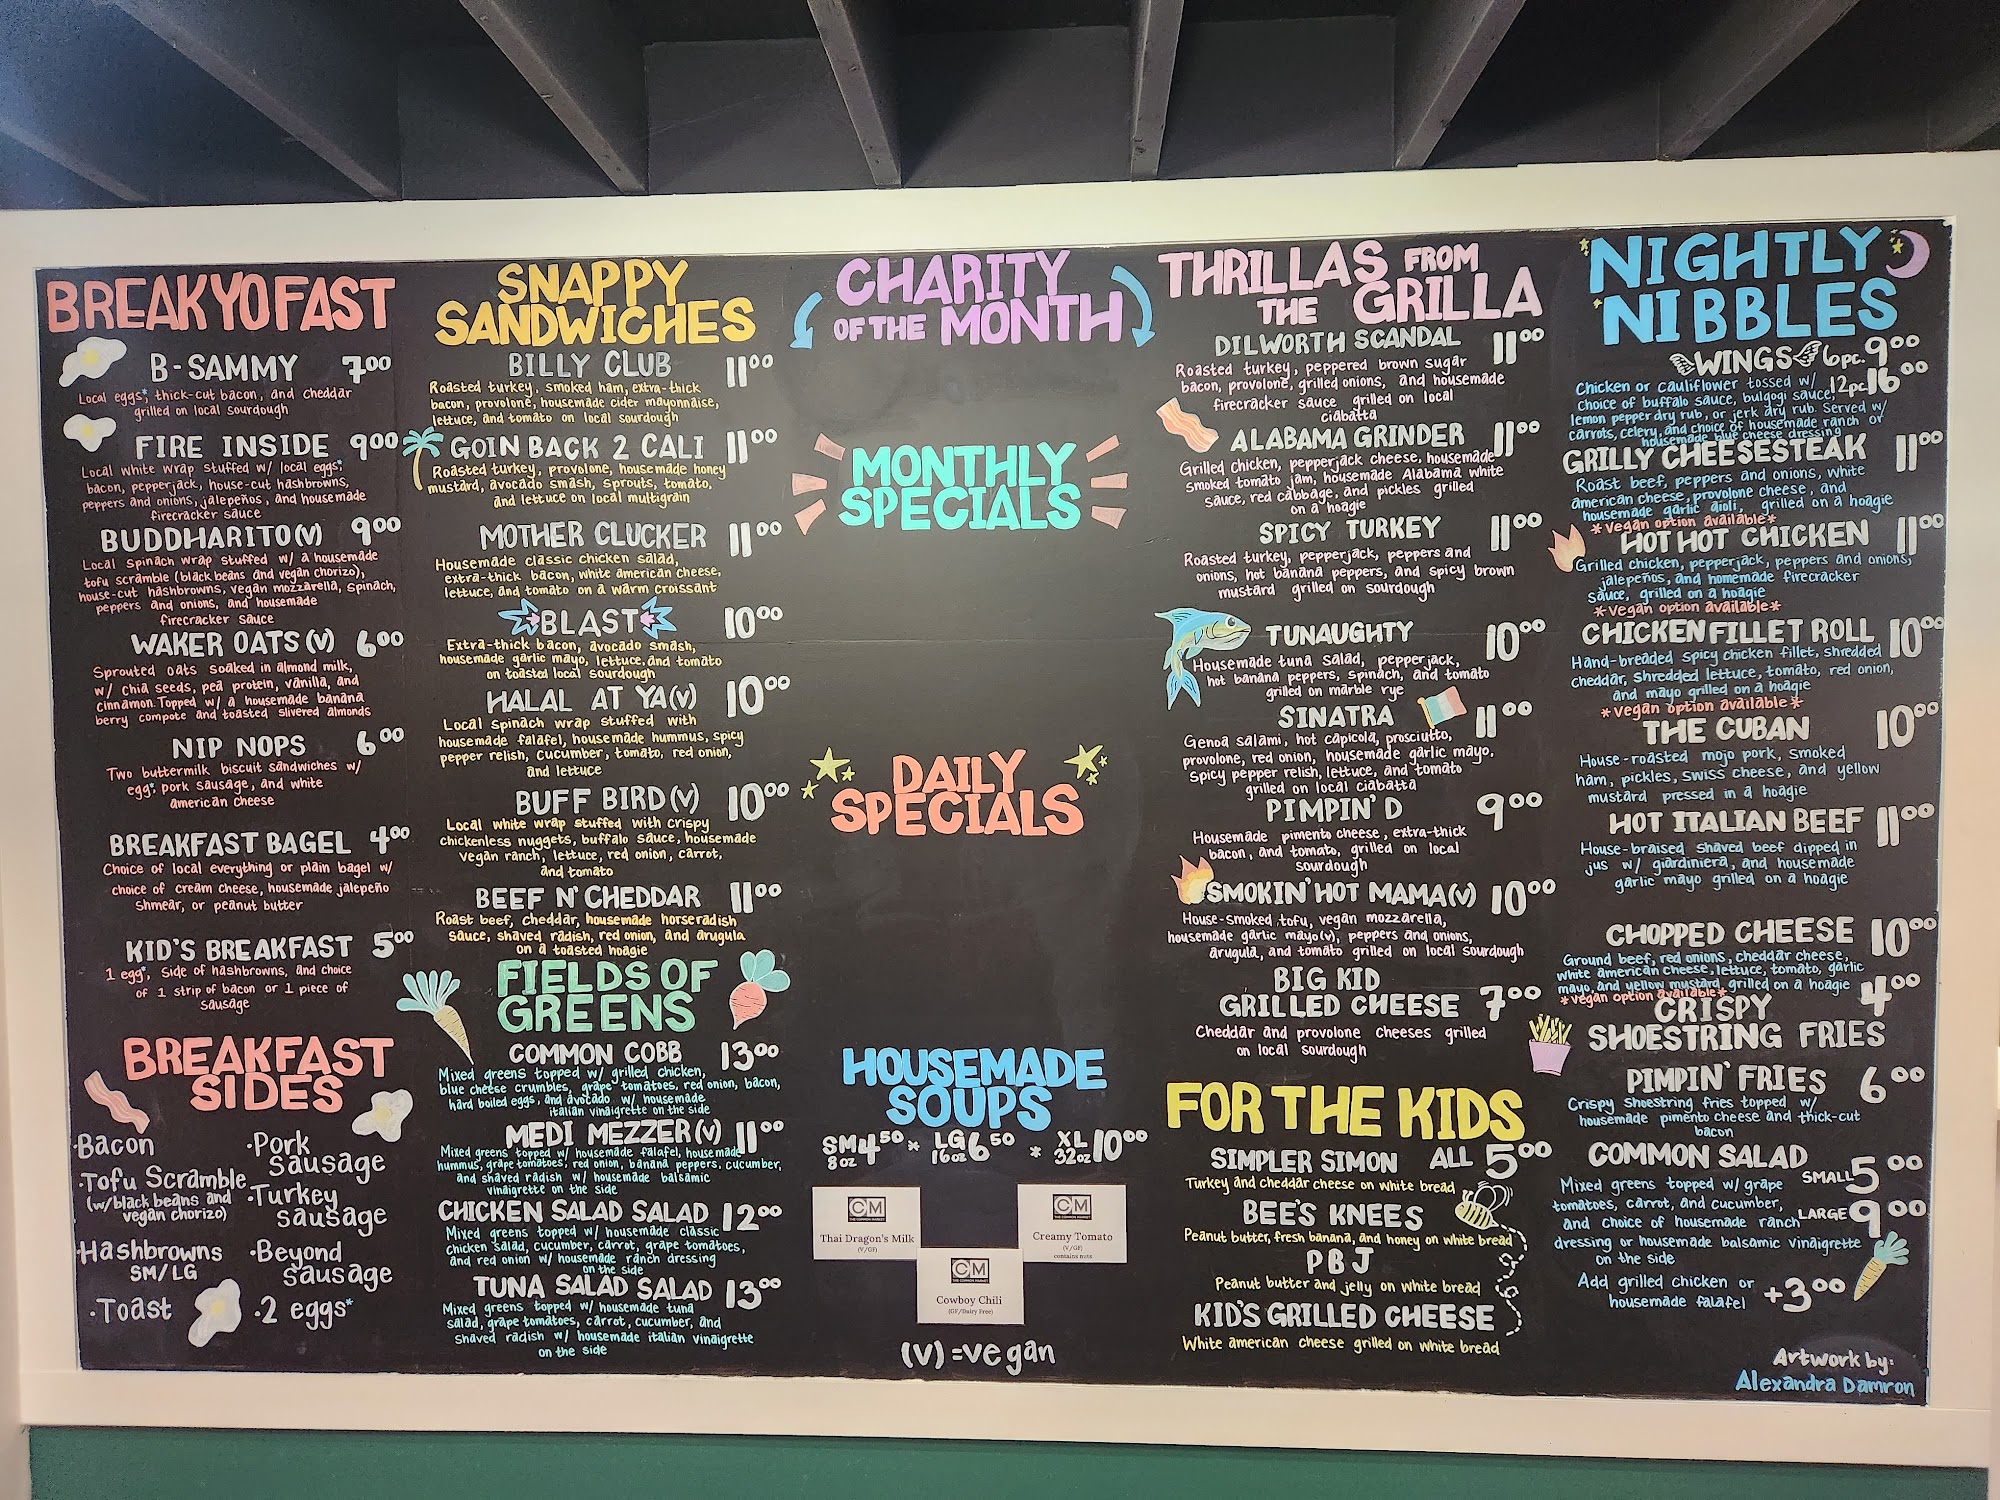 BREAKYOFAST
B-SAMMY 7⁰⁰
Local eggs*, thick-cut bacon, and cheddar
grilled on local sourdough
FIRE INSIDE 9⁰⁰
Local white wrap stuffed w/ local eggs*,
bacon, pepperjack, house-cut hashbrowns,
peppers and onions, jalepeños, and housemade
firecracker sauce
BUDDHARITO(V) 9⁰⁰
Local spinach wrap stuffed w/ a housemade
tofu scramble (black beans and vegan chorizo),
house-cut hashbrowns, vegan mozzarella, spinach,
peppers and onions, and housemade
firecracker sauce
WAKER OATS (V) 6⁰⁰
Sprouted oats soaked in almond milk,
w/ chia seeds, pea protein, vanilla, and
cinnamon. Topped w/ a housemade banana
berry compote and toasted slivered almonds
NIP NOPS 6⁰⁰
Two buttermilk biscuit sandwiches w/
egg*, pork sausage, and white
american cheese
BREAKFAST BAGEL 4⁰⁰
Choice of local everything or plain bagel w/
choice of cream cheese, housemade jalepeño
shmear, or peanut butter
KID'S BREAKFAST 5⁰⁰
1 egg*, side of hashbrowns, and choice
of 1 strip of bacon or 1 piece of
sausage
BREAKFAST
SIDES
·Bacon
·Tofu Scramble
(w/black beans and
vegan chorizo)
·Hashbrowns
SM/LG
·Toast
·Pork
sausage
·Turkey
sausage
·Beyond
sausage
·2 eggs*
SNAPPY
SANDWICHES
BILLY CLUB 11⁰⁰
Roasted turkey, smoked ham, extra-thick
bacon, provolone, housemade cider mayonnaise,
lettuce, and tomato on local sourdough
GOIN BACK 2 CALI 11⁰⁰
Roasted turkey, provolone, housemade honey
mustard, avocado smash, sprouts, tomato,
and lettuce on local multigrain
MOTHER CLUCKER 11⁰⁰
Housemade classic chicken salad,
extra-thick bacon, white american cheese,
lettuce, and tomato on a warm croissant
BLAST 10⁰⁰
Extra-thick bacon, avocado smash,
housemade garlic mayo, lettuce, and tomato
on toasted local sourdough
HALAL AT YA(V) 10⁰⁰
Local spinach wrap stuffed with
housemade falafel, housemade hummus, spicy
pepper relish, cucumber, tomato, red onion,
and lettuce
BUFF BIRD(V) 10⁰⁰
Local white wrap stuffed with crispy
chickenless nuggets, buffalo sauce, housemade
vegan ranch, lettuce, red onion, carrot,
and tomato
BEEF N' CHEDDAR 11⁰⁰
Roast beef, cheddar, housemade horseradish
sauce, shaved radish, red onion, and arugula
on a toasted hoagie
FIELDS OF
GREENS
COMMON COBB 13⁰⁰
Mixed greens topped w/ grilled chicken,
blue cheese crumbles, grape tomatoes, red onion, bacon,
hard boiled eggs, and avocado w/ housemade
italian vinaigrette on the side
MEDI MEZZER(V) 11⁰⁰
Mixed greens topped w/ housemade falafel, housemade
hummus, grape tomatoes, red onion, banana peppers, cucumber,
and shaved radish w/ housemade balsamic
vinaigrette on the side
CHICKEN SALAD SALAD 12⁰⁰
Mixed greens topped w/ housemade classic
chicken salad, cucumber, carrot, grape tomatoes,
and red onion w/ housemade ranch dressing
on the side
TUNA SALAD SALAD 13⁰⁰
Mixed greens topped w/ housemade tuna
salad, grape tomatoes, carrot, cucumber, and
shaved radish w/ housemade italian vinaigrette
on the side
CHARITY
OF THE MONTH
MONTHLY
SPECIALS
DAILY
SPECIALS
HOUSEMADE
SOUPS
SM 8oz 4⁵⁰ * LG 16oz 6⁵⁰ * XL 32oz 10⁰⁰
CM
THE COMMON MARKET
Thai Dragon's Milk
(V/GF)
CM
THE COMMON MARKET
Creamy Tomato
(V/GF)
contains nuts
CM
THE COMMON MARKET
Cowboy Chili
(GF/Dairy Free)
(V) = vegan
THRILLAS FROM
THE GRILLA
DILWORTH SCANDAL 11⁰⁰
Roasted turkey, peppered brown sugar
bacon, provolone, grilled onions, and housemade
firecracker sauce grilled on local
ciabatta
ALABAMA GRINDER 11⁰⁰
Grilled chicken, pepperjack cheese, housemade
smoked tomato jam, housemade Alabama white
sauce, red cabbage, and pickles grilled
on a hoagie
SPICY TURKEY 11⁰⁰
Roasted turkey, pepperjack, peppers and
onions, hot banana peppers, and spicy brown
mustard grilled on sourdough
TUNAUGHTY 10⁰⁰
Housemade tuna salad, pepperjack,
hot banana peppers, spinach, and tomato
grilled on marble rye
SINATRA 11⁰⁰
Genoa salami, hot capicola, prosciutto,
provolone, red onion, housemade garlic mayo,
spicy pepper relish, lettuce, and tomato
grilled on local ciabatta
PIMPIN' D 9⁰⁰
Housemade pimento cheese, extra-thick
bacon, and tomato, grilled on local
sourdough
SMOKIN' HOT MAMA(V) 10⁰⁰
House-smoked tofu, vegan mozzarella,
housemade garlic mayo(v), peppers and onions,
arugula, and tomato grilled on local sourdough
BIG KID
GRILLED CHEESE 7⁰⁰
Cheddar and provolone cheeses grilled
on local sourdough
FOR THE KIDS
SIMPLER SIMON ALL 5⁰⁰
Turkey and cheddar cheese on white bread
BEE'S KNEES
Peanut butter, fresh banana, and honey on white bread
PBJ
Peanut butter and jelly on white bread
KID'S GRILLED CHEESE
White american cheese grilled on white bread
NIGHTLY
NIBBLES
WINGS 6pc. 9⁰⁰
12pc 16⁰⁰
Chicken or cauliflower tossed w/
choice of buffalo sauce, bulgogi sauce,
lemon pepper dry rub, or jerk dry rub. Served w/
carrots, celery, and choice of housemade ranch or
housemade blue cheese dressing
GRILLY CHEESESTEAK 11⁰⁰
Roast beef, peppers and onions, white
american cheese, provolone cheese, and
housemade garlic aioli, grilled on a hoagie
*vegan option available*
HOT HOT CHICKEN 11⁰⁰
Grilled chicken, pepperjack, peppers and onions,
jalepeños, and homemade firecracker
sauce, grilled on a hoagie
*vegan option available*
CHICKEN FILLET ROLL 10⁰⁰
Hand-breaded spicy chicken fillet, shredded
cheddar, shredded lettuce, tomato, red onion,
and mayo grilled on a hoagie
*vegan option available*
THE CUBAN 10⁰⁰
House-roasted mojo pork, smoked
ham, pickles, swiss cheese, and yellow
mustard pressed in a hoagie
HOT ITALIAN BEEF 11⁰⁰
House-braised shaved beef dipped in
jus w/ giardiniera, and housemade
garlic mayo grilled on a hoagie
CHOPPED CHEESE 10⁰⁰
Ground beef, red onions, cheddar cheese,
white american cheese, lettuce, tomato, garlic
mayo, and yellow mustard grilled on a hoagie
*vegan option available*
CRISPY 4⁰⁰
SHOESTRING FRIES
PIMPIN' FRIES 6⁰⁰
Crispy shoestring fries topped w/
housemade pimento cheese and thick-cut
bacon
COMMON SALAD
SMALL 5⁰⁰
LARGE 9⁰⁰
Mixed greens topped w/ grape
tomatoes, carrot, and cucumber,
and choice of housemade ranch
dressing or housemade balsamic vinaigrette
on the side
Add grilled chicken or
housemade falafel +3⁰⁰
Artwork by:
Alexandra Damron